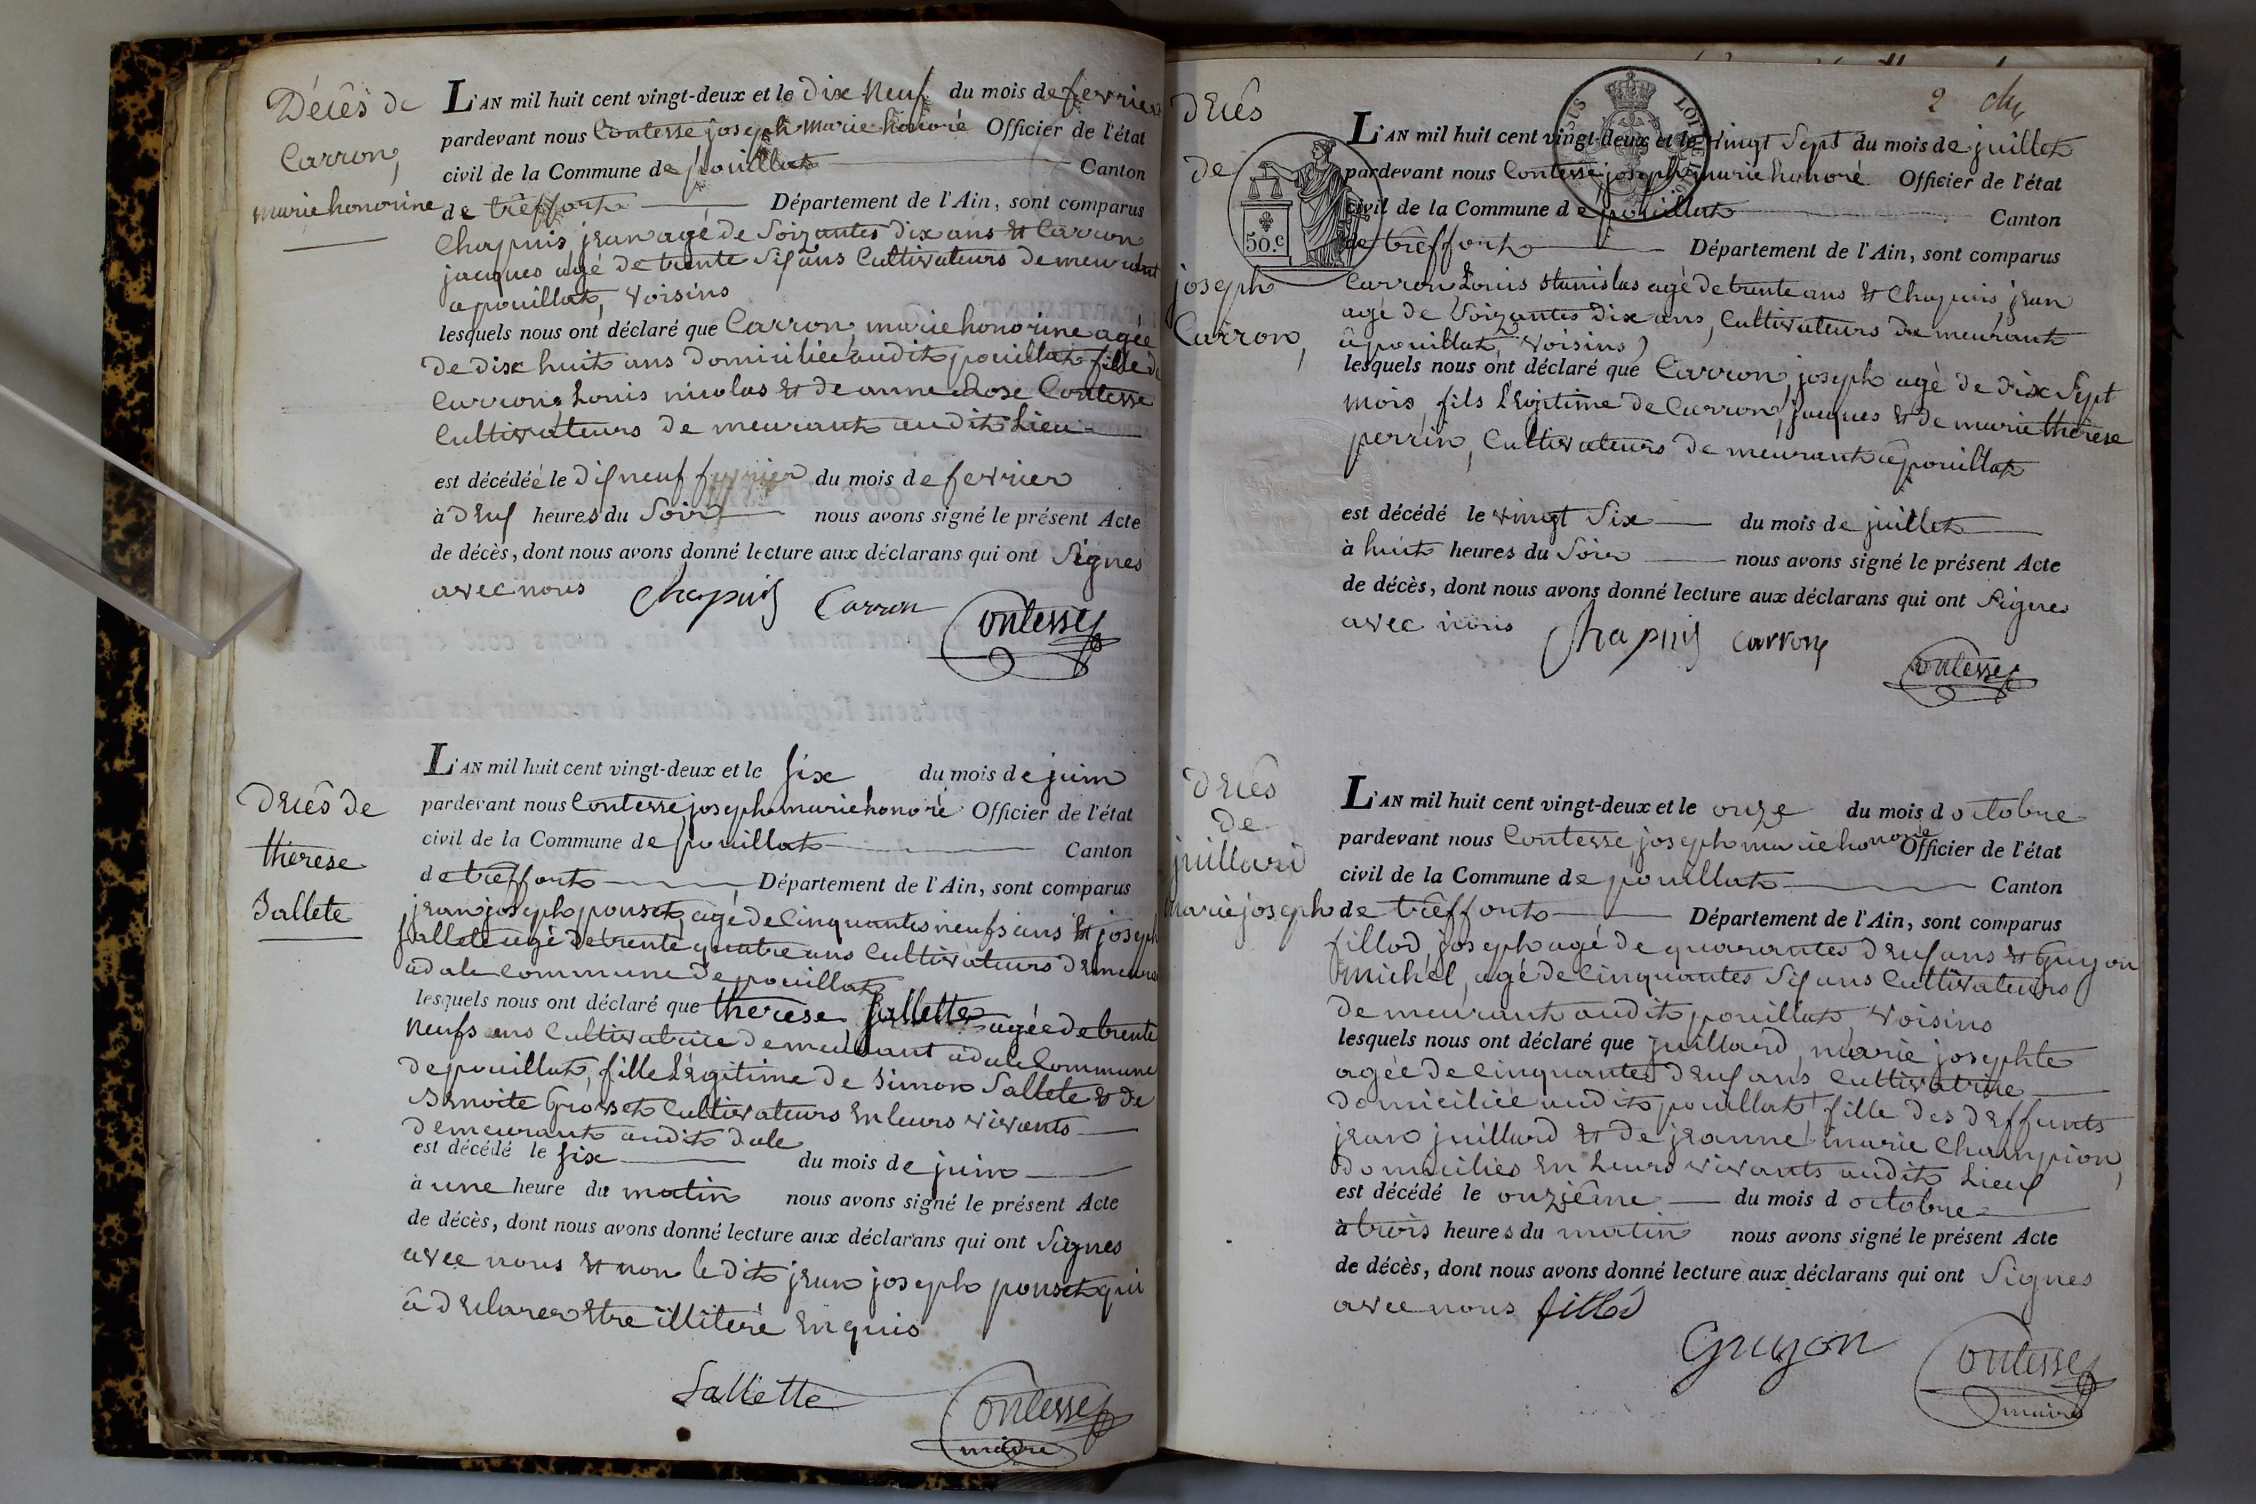 Décès de
Carron,
marie honorine
L'AN mil huit cent vingt-deux et le dix neuf du mois de fevrier
pardevant nous Contesse joseph marie honoré Officier de l'état
civil de la Commune de pouillat Canton
de trêffort Département de l'Ain, sont comparus
Chapuis jean agé de Soizantes dix ans et Carron
jacques agé de trente Six ans Cultivateurs demeurant
a pouillat, voisins
lesquels nous ont déclaré que Carron, marie honorine agée
de dix huit ans domiciliée audit pouillat fille de
Carron Louis nicolas et de anne Rose Contesse
Cultivateurs demeurant audit Lieu
est décédée le dixneuf fevrier du mois de fevrier
à deux heures du Soir nous avons signé le présent Acte
de décès, dont nous avons donné lecture aux déclarans qui ont Signés
avec nous Chapuis Carron Contesse
Decês de
therese
Sallete
L'AN mil huit cent vingt-deux et le six du mois de juin
pardevant nous Contesse joseph marie honoré Officier de l'état
civil de la Commune de pouillat Canton
de trêffort Département de l'Ain, sont comparus
jean joseph ponset agé de Cinquantes neufs ans et joseph
Sallete agé de trente quatre ans Cultivateurs demeurant
a dale Commune de pouillat
lesquels nous ont déclaré que therese Sallette agée de trente
neufs ans Cultivatrice demeurant a dale Commune
de pouillat, fille Légitime de Simon Sallete et de
Benoite Grosset Cultivateurs En leurs vivants
demeurant audit dale
est décédé le six du mois de juin
à une heure du matin nous avons signé le présent Acte
de décès, dont nous avons donné lecture aux déclarans qui ont Signes
avec nous et non le dit jean joseph ponset qui
â declarer Etre illiteré Enquis
Sallette Contesse
maire
2
decês
de
joseph
Carron,
50.c
L'AN mil huit cent vingt-deux et le vingt Sept du mois de juillet
pardevant nous Contesse joseph marie honoré Officier de l'état
civil de la Commune de pouillat Canton
de trêffort Département de l'Ain, sont comparus
Carron Louis stanislas agé de trente ans et Chapuis, jean
agé de Soizantes dix ans, Cultivateurs demeurant
â pouillat, voisins
lesquels nous ont déclaré que Carron, joseph agé de dix Sept
mois, fils Légitime de Carron, jacques et de marie therese
perrin, Cultivateurs demeurant â pouillat
est décédé le vingt Six du mois de juillet
à huit heures du Soir nous avons signé le présent Acte
de décès, dont nous avons donné lecture aux déclarans qui ont Signes
avec nous Chapuis Carron
Contesse
decês
de
juillard
marie joseph
L'AN mil huit cent vingt-deux et le onze du mois d octobre
pardevant nous Contesse, joseph marie honoré Officier de l'état
civil de la Commune de pouillat Canton
de trêffort Département de l'Ain, sont comparus
fillod, joseph agé de quarantes deux ans et Guyon
michel, agé de Cinquantes Six ans Cultivateurs
demeurant audit pouillat, voisins
lesquels nous ont déclaré que juillard, marie josephte
agée de Cinquantes deux ans Cultivatrice
domiciliée audit pouillat fille des deffunts
jean juillard et de jeanne marie Champion,
domiciliés En Leurs vivants audit Lieu
est décédé le onziême du mois d octobre
à trois heures du matin nous avons signé le présent Acte
de décès, dont nous avons donné lecture aux déclarans qui ont Signes
avec nous fillod
Guyon Contesse
maire